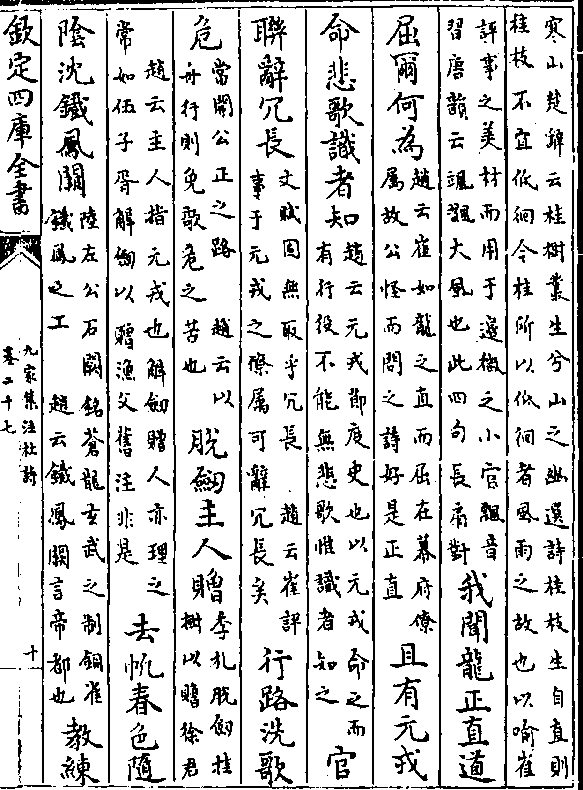 寒山楚辭云桂樹叢生兮山之幽選詩桂枝生自直則
桂枝不宜低徊今桂所以低徊者風雨之故也以喻崔
評事之美材而用于邊徼之小官飄音
習唐韻云颯颯大風也此四句長扇對
我聞龍正直道
屈爾何為
趙云崔如龍之直而屈在幕府僚
屬故公怪而問之詩好是正直
且有元戎
命悲歌識者知
趙云元戎節度史也以元戎命之而
有行役不能無悲歌惟識者知之
官
聯辭冗長
文賦固無取乎冗長 趙云崔評
事于元戎之僚屬可辭冗長矣
行路洗歌
危
當開公正之路 趙云以
舟行則免歌危之苦也
脫劒主人贈
季札脫劒挂
樹以贈徐君
趙云主人指元戎也解劒贈人亦理之
常如伍子胥解劒以贈漁父舊注非是
去帆春色隨
陰沈鐵鳳闕
陸左公石闕銘蒼龍玄武之制銅雀
鐵鳳之工 趙云鐵鳳闕言帝都也
教練
欽定四庫全書
九家集注杜詩
卷二十七
十